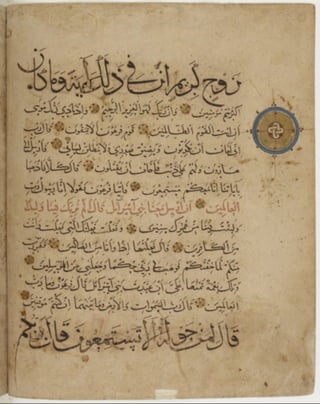 زوج كريم ان في ذلك لاية وما كان
اكثرهم مؤمنين وان ربك لهو العزيز الرحيم واذ نادى ربك موسى
ان ائت القوم الظالمين قوم فرعون الا يتقون قال رب
اني اخاف ان يكذبون ويضيق صدري ولا ينطلق لساني فارسل الى
هارون ولهم علي ذنب فاخاف ان يقتلون قال كلا فاذهبا
باياتنا انا معكم مستمعون فاتيا فرعون فقولا انا رسول رب
العالمين ان ارسل معنا بني اسرائيل قال الم نربك فينا وليدا
ولبثت فينا من عمرك سنين وفعلت فعلتك التي فعلت وانت
من الكافرين قال فعلتها اذا وانا من الضالين ففررت
منكم لما خفتكم فوهب لي ربي حكما وجعلني من المرسلين
وتلك نعمة تمنها علي ان عبدت بني اسرائيل قال فرعون وما رب
العالمين قال رب السموات والارض وما بينهما ان كنتم موقنين
قال لمن حوله الا تستمعون قال ربكم